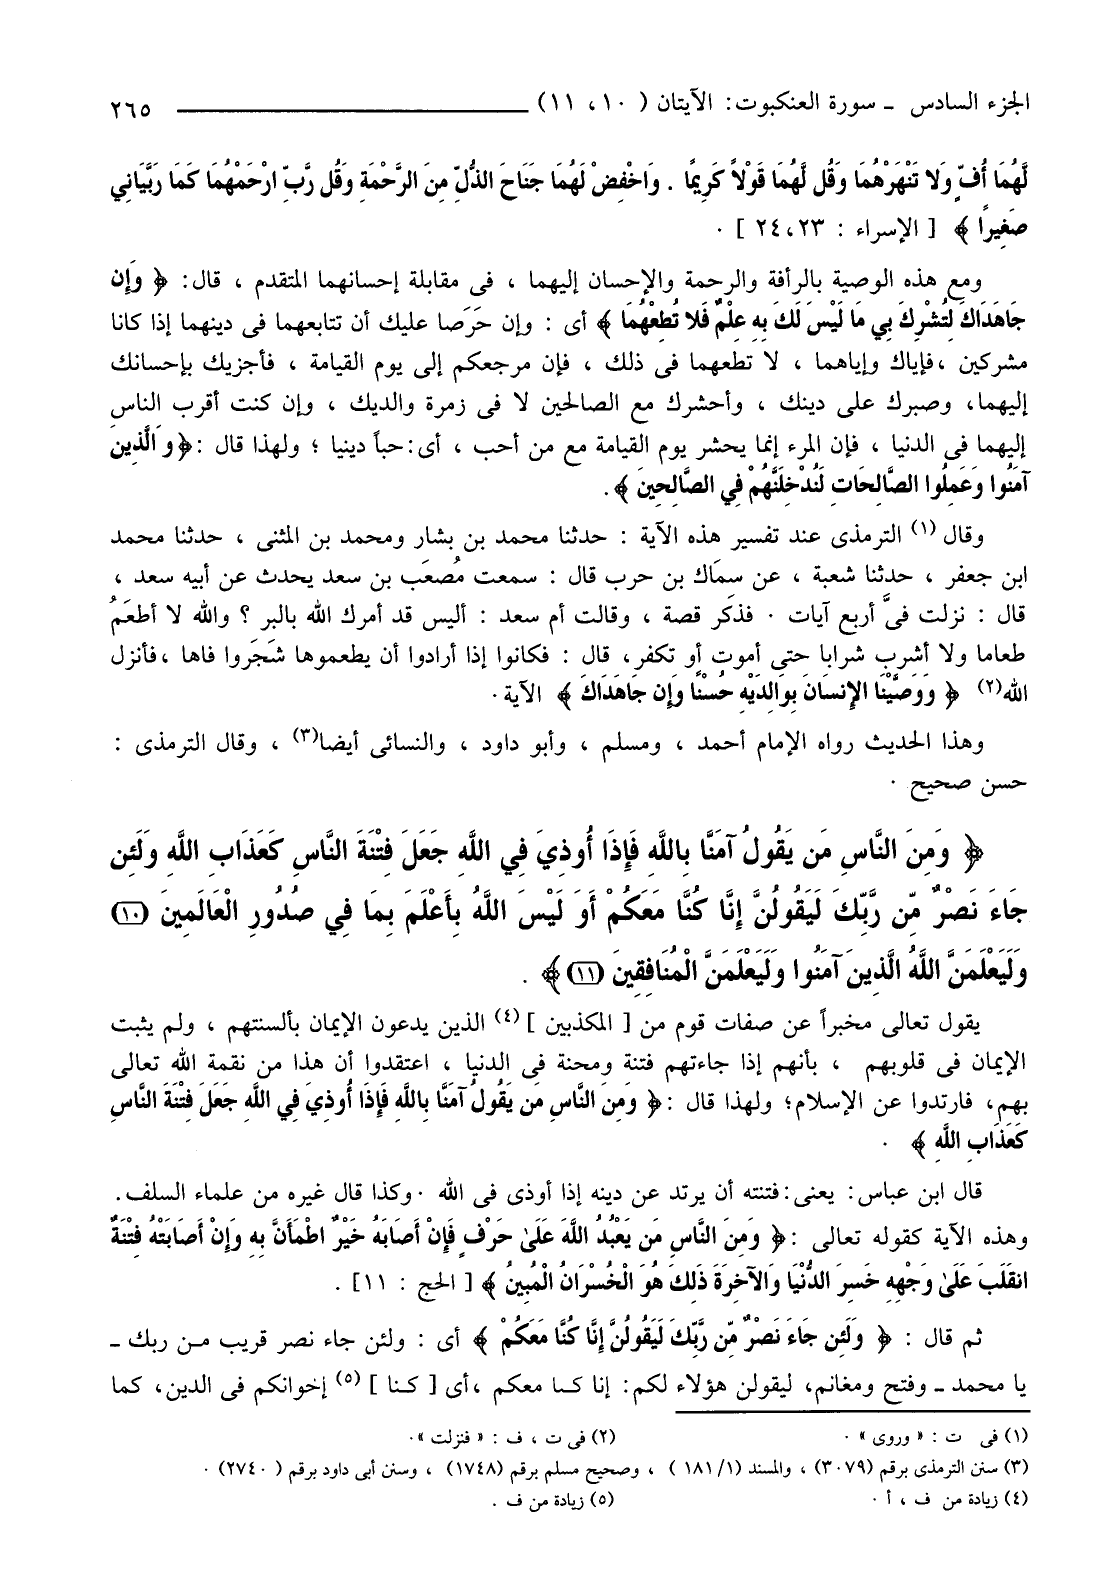 الجزء السادس ـ سورة العنكبوت: الآيتان ( ١٠، ١١) ٢٦٥
لَّهُمَا أُفٍّ وَلا تَنْهَرْهُمَا وَقُل لَّهُمَا قَوْلاً كَرِيمًا . وَاخْفِضْ لَهُمَا جَنَاحَ الذُّلِّ مِنَ الرَّحْمَةِ وَقُل رَّبِّ ارْحَمْهُمَا كَمَا رَبَّيَانِي
صَغِيراً ﴾ [ الإسراء : ٢٣، ٢٤ ] .
ومع هذه الوصية بالرأفة والرحمة والإحسان إليهما ، فى مقابلة إحسانهما المتقدم ، قال: ﴿ وَإِن
جَاهَدَاكَ لِتُشْرِكَ بِي مَا لَيْسَ لَكَ بِهِ عِلْمٌ فَلا تُطِعْهُمَا ﴾ أى : وإن حَرَصا عليك أن تتابعهما فى دينهما إذا كانا
مشركين ،فإياك وإياهما ، لا تطعهما فى ذلك ، فإن مرجعكم إلى يوم القيامة ، فأجزيك بإحسانك
إليهما، وصبرك على دينك ، وأحشرك مع الصالحين لا فى زمرة والديك ، وإن كنت أقرب الناس
إليهما فى الدنيا ، فإن المرء إنما يحشر يوم القيامة مع من أحب ، أى:حباً دينيا ؛ ولهذا قال :﴿ وَالَّذِينَ
آمَنُوا وَعَمِلُوا الصَّالِحَاتِ لَنُدْخِلَنَّهُمْ فِي الصَّالِحِينَ ﴾.
وقال (١) الترمذى عند تفسير هذه الآية : حدثنا محمد بن بشار ومحمد بن المثنى ، حدثنا محمد
ابن جعفر ، حدثنا شعبة ، عن سِمَاك بن حرب قال : سمعت مُصعَب بن سعد يحدث عن أبيه سعد ،
قال : نزلت فىَّ أربع آيات . فذكر قصة ، وقالت أم سعد : أليس قد أمرك الله بالبر ؟ والله لا أطعَمُ
طعاما ولا أشرب شرابا حتى أموت أو تكفر، قال : فكانوا إذا أرادوا أن يطعموها شَجَروا فاها ،فأنزل
الله(٢) ﴿ وَوَصَّيْنَا الإِنسَانَ بِوَالِدَيْهِ حُسْنًا وَإِن جَاهَدَاكَ ﴾ الآية.
وهذا الحديث رواه الإمام أحمد ، ومسلم ، وأبو داود ، والنسائى أيضا(٣) ، وقال الترمذى :
حسن صحيح .
﴿ وَمِنَ النَّاسِ مَن يَقُولُ آمَنَّا بِاللَّهِ فَإِذَا أُوذِيَ فِي اللَّهِ جَعَلَ فِتْنَةَ النَّاسِ كَعَذَابِ اللَّهِ وَلَئِن
جَاءَ نَصْرٌ مِّن رَّبِّكَ لَيَقُولُنَّ إِنَّا كُنَّا مَعَكُمْ أَوَ لَيْسَ اللَّهُ بِأَعْلَمَ بِمَا فِي صُدُورِ الْعَالَمِينَ (١٠)
وَلَيَعْلَمَنَّ اللَّهُ الَّذِينَ آمَنُوا وَلَيَعْلَمَنَّ الْمُنَافِقِينَ (١١) ﴾ .
يقول تعالى مخبراً عن صفات قوم من [ المكذبين ] (٤) الذين يدعون الإيمان بألسنتهم ، ولم يثبت
الإيمان فى قلوبهم ، بأنهم إذا جاءتهم فتنة ومحنة فى الدنيا ، اعتقدوا أن هذا من نقمة الله تعالى
بهم، فارتدوا عن الإسلام؛ ولهذا قال :﴿ وَمِنَ النَّاسِ مَن يَقُولُ آمَنَّا بِاللَّهِ فَإِذَا أُوذِيَ فِي اللَّهِ جَعَلَ فِتْنَةَ النَّاسِ
كَعَذَابِ اللَّهِ ﴾ .
قال ابن عباس: يعنى:فتنته أن يرتد عن دينه إذا أوذى فى الله .وكذا قال غيره من علماء السلف.
وهذه الآية كقوله تعالى :﴿ وَمِنَ النَّاسِ مَن يَعْبُدُ اللَّهَ عَلَىٰ حَرْفٍ فَإِنْ أَصَابَهُ خَيْرٌ اطْمَأَنَّ بِهِ وَإِنْ أَصَابَتْهُ فِتْنَةٌ
انقَلَبَ عَلَىٰ وَجْهِهِ خَسِرَ الدُّنْيَا وَالآخِرَةَ ذَلِكَ هُوَ الْخُسْرَانُ الْمُبِينُ ﴾ [ الحج : ١١] .
ثم قال : ﴿ وَلَئِن جَاءَ نَصْرٌ مِّن رَّبِّكَ لَيَقُولُنَّ إِنَّا كُنَّا مَعَكُمْ ﴾ أى : ولئن جاء نصر قريب من ربك ـ
يا محمد ـ وفتح ومغانم، ليقولن هؤلاء لكم: إنا كنا معكم ،أى [ كنا ] (٥) إخوانكم فى الدين، كما
(١) فى ت : « وروى » . (٢) فى ت ، ف : « فنزلت ».
(٣) سنن الترمذى برقم (٣٠٧٩) ، والمسند (١/ ١٨١ ) ، وصحيح مسلم برقم (١٧٤٨) ، وسنن أبى داود برقم ( ٢٧٤٠) .
(٤) زيادة من ف ، أ . (٥) زيادة من ف .